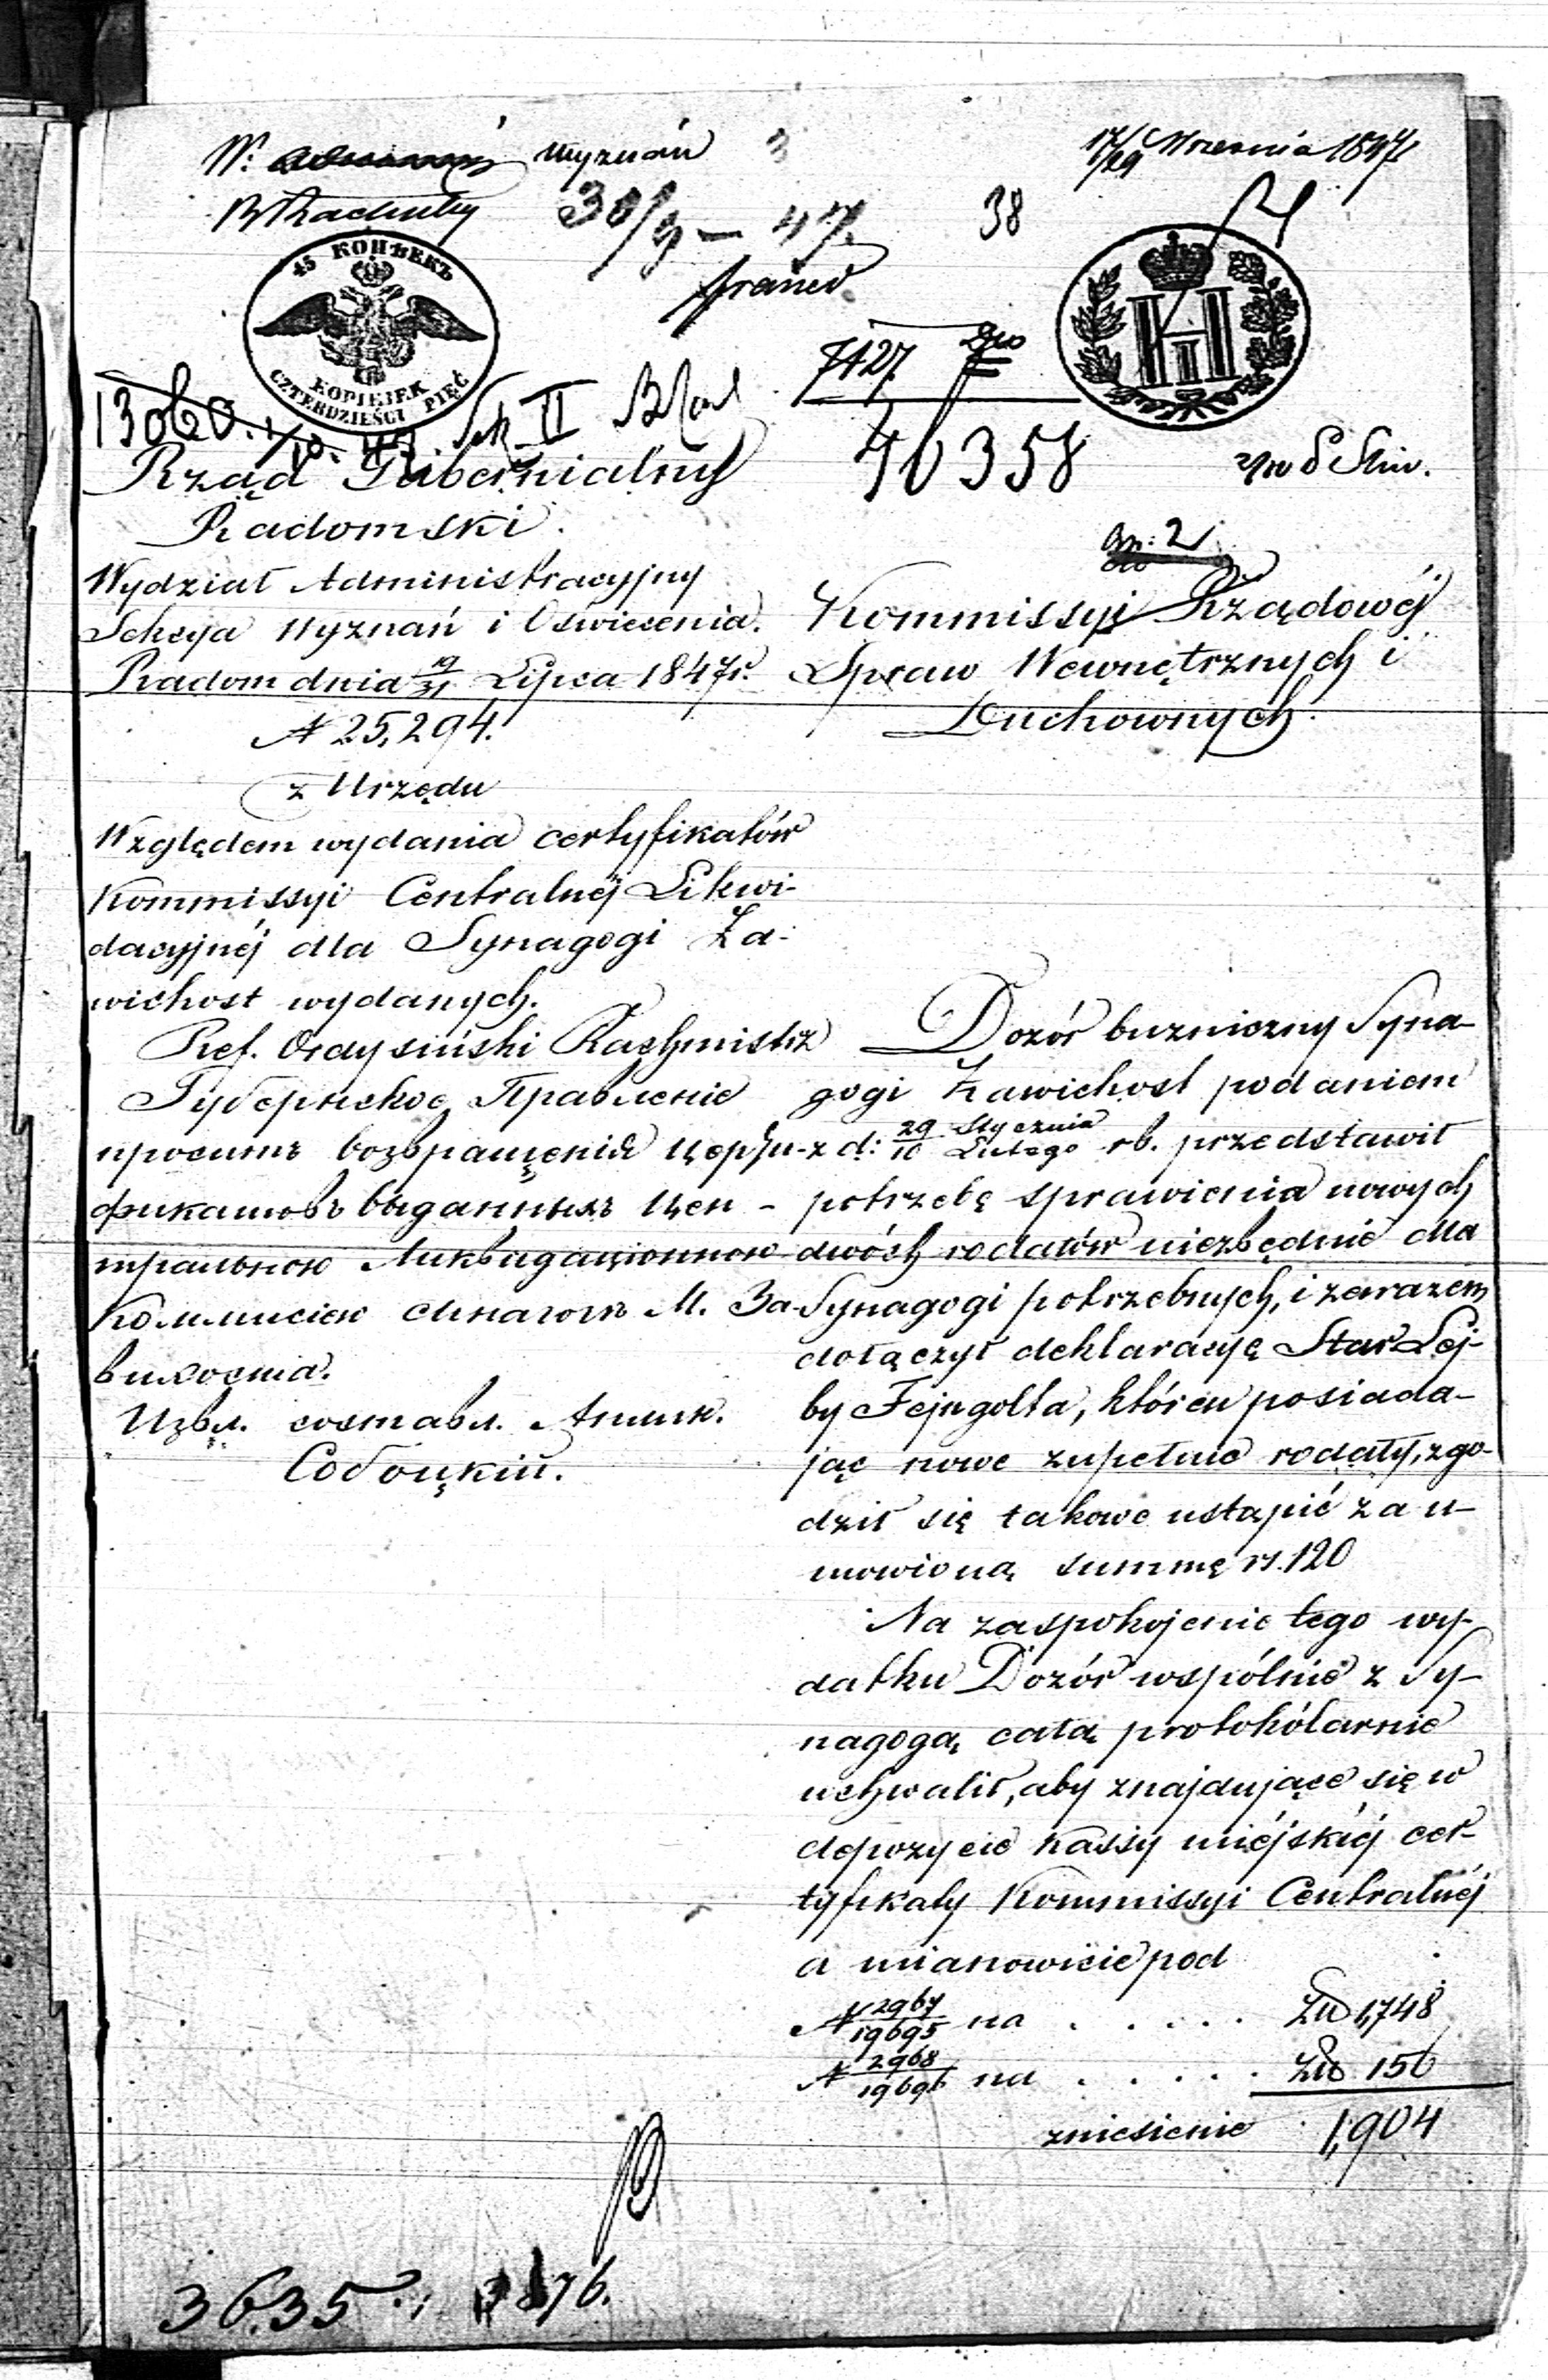 W: wyznań 3
17/29 Września 1847
30/9 – 47.
38
45 КОПѢЕКЪ
KOPIEJEK
CZTERDZIEŚCI PIĘĆ
7127.
13060. 1/10. 47 Sek II
46358
Rząd Gubernialny
Radomski.
Wydział Administracyjny
Sekcya Wyznań i Oświecenia.
Radom dnia 19/31 Lipca 1847r.
N 25,294.
z Urzędu
Względem wydania certyfikatów
Kommissyi Centralnéj Likwi-
dacyjnéj dla Synagogi Za-
wichost wydanych.
Ref. Ordysiński Rachmistrz
Губернское Правленіе
проситъ возвращенія церти-
фикатовъ выданныхъ Цен-
тральною Ликвидаціонною
Коммисіею синагогѣ М. За-
вихоста.
Собоцкій.
Kommissyi Rządowéj
Spraw Wewnętrznych i
Duchownych.
Dozór buzniczny Syna-
gogi Zawichost podaniem
z d: 29 Stycznia/10 Lutego rb. przedstawił
potrzebę sprawienia nowych
dwóch rodałów niezbędnie dla
Synagogi potrzebnych, i zarazem
dołączył deklaracyę Star Lej-
by Fejngolta, któren posiada-
jąc nowe zupełnie rodały, zgo-
dził się takowe ustąpić za u-
mowioną summę rs. 120
Na zaspokojenie tego wy-
datku Dozór wspólnie z Sy-
nagogą całą protokólarnie
uchwalił, aby znajdujące się w
depozycie Kassy miéjskiéj cer-
tyfikaty Kommissyi Centralnéj
a mianowicie pod
N 2967/19695 na . . . . . Złp 1,748
N 2968/19696 na . . . . . Złp 156
zniesienie 1,904
3635